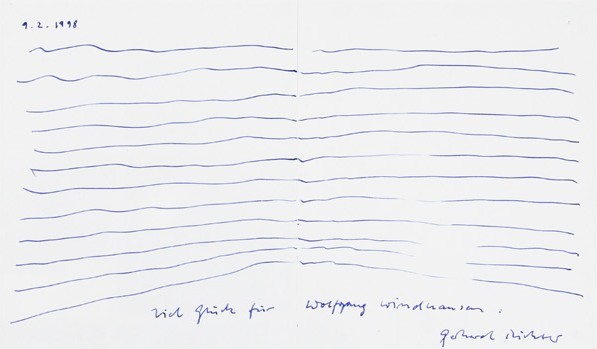 9.2.1998
Viel Glück für Wolfgang Windhausen.
Gerhard Richter